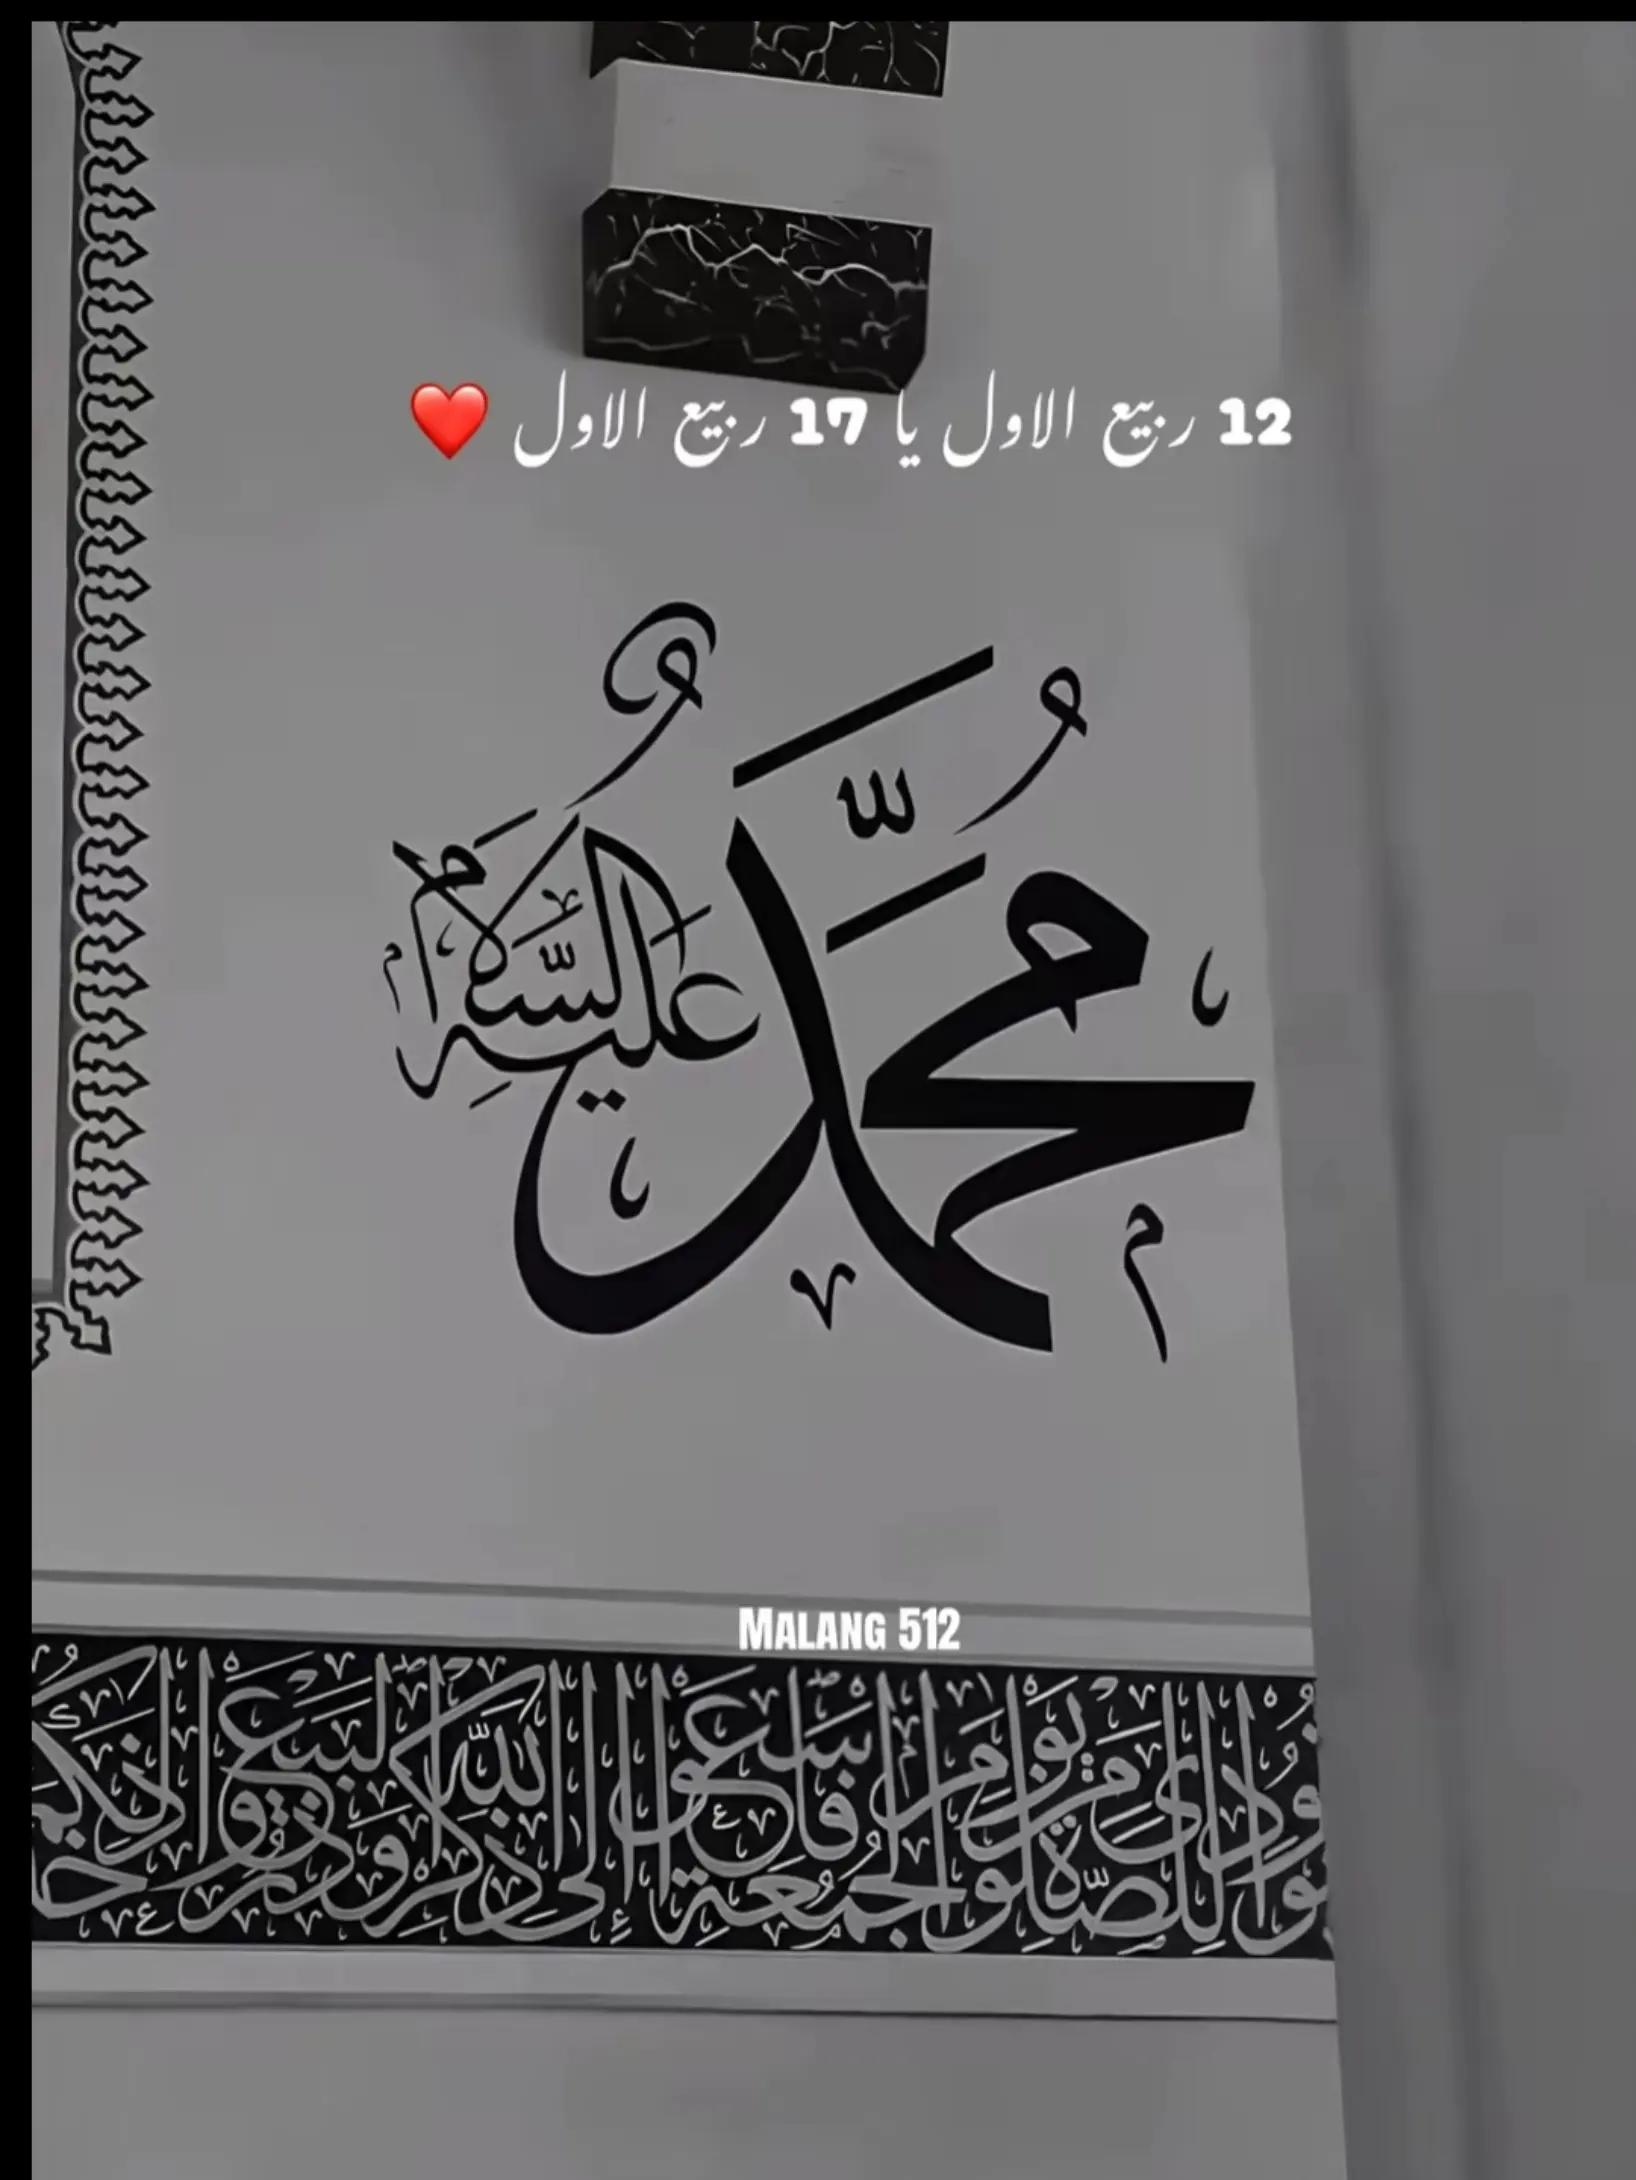 12 ربیع الاول یا 17 ربیع الاول ❤️
مُحَمَّد عَلَيْهِ السَّلَام
MALANG 512
نُودِيَ لِلصَّلَوٰةِ مِنْ يَوْمِ الْجُمُعَةِ فَاسْعَوْا إِلَىٰ ذِكْرِ اللَّهِ وَذَرُوا الْبَيْعَ ذَٰلِكُمْ